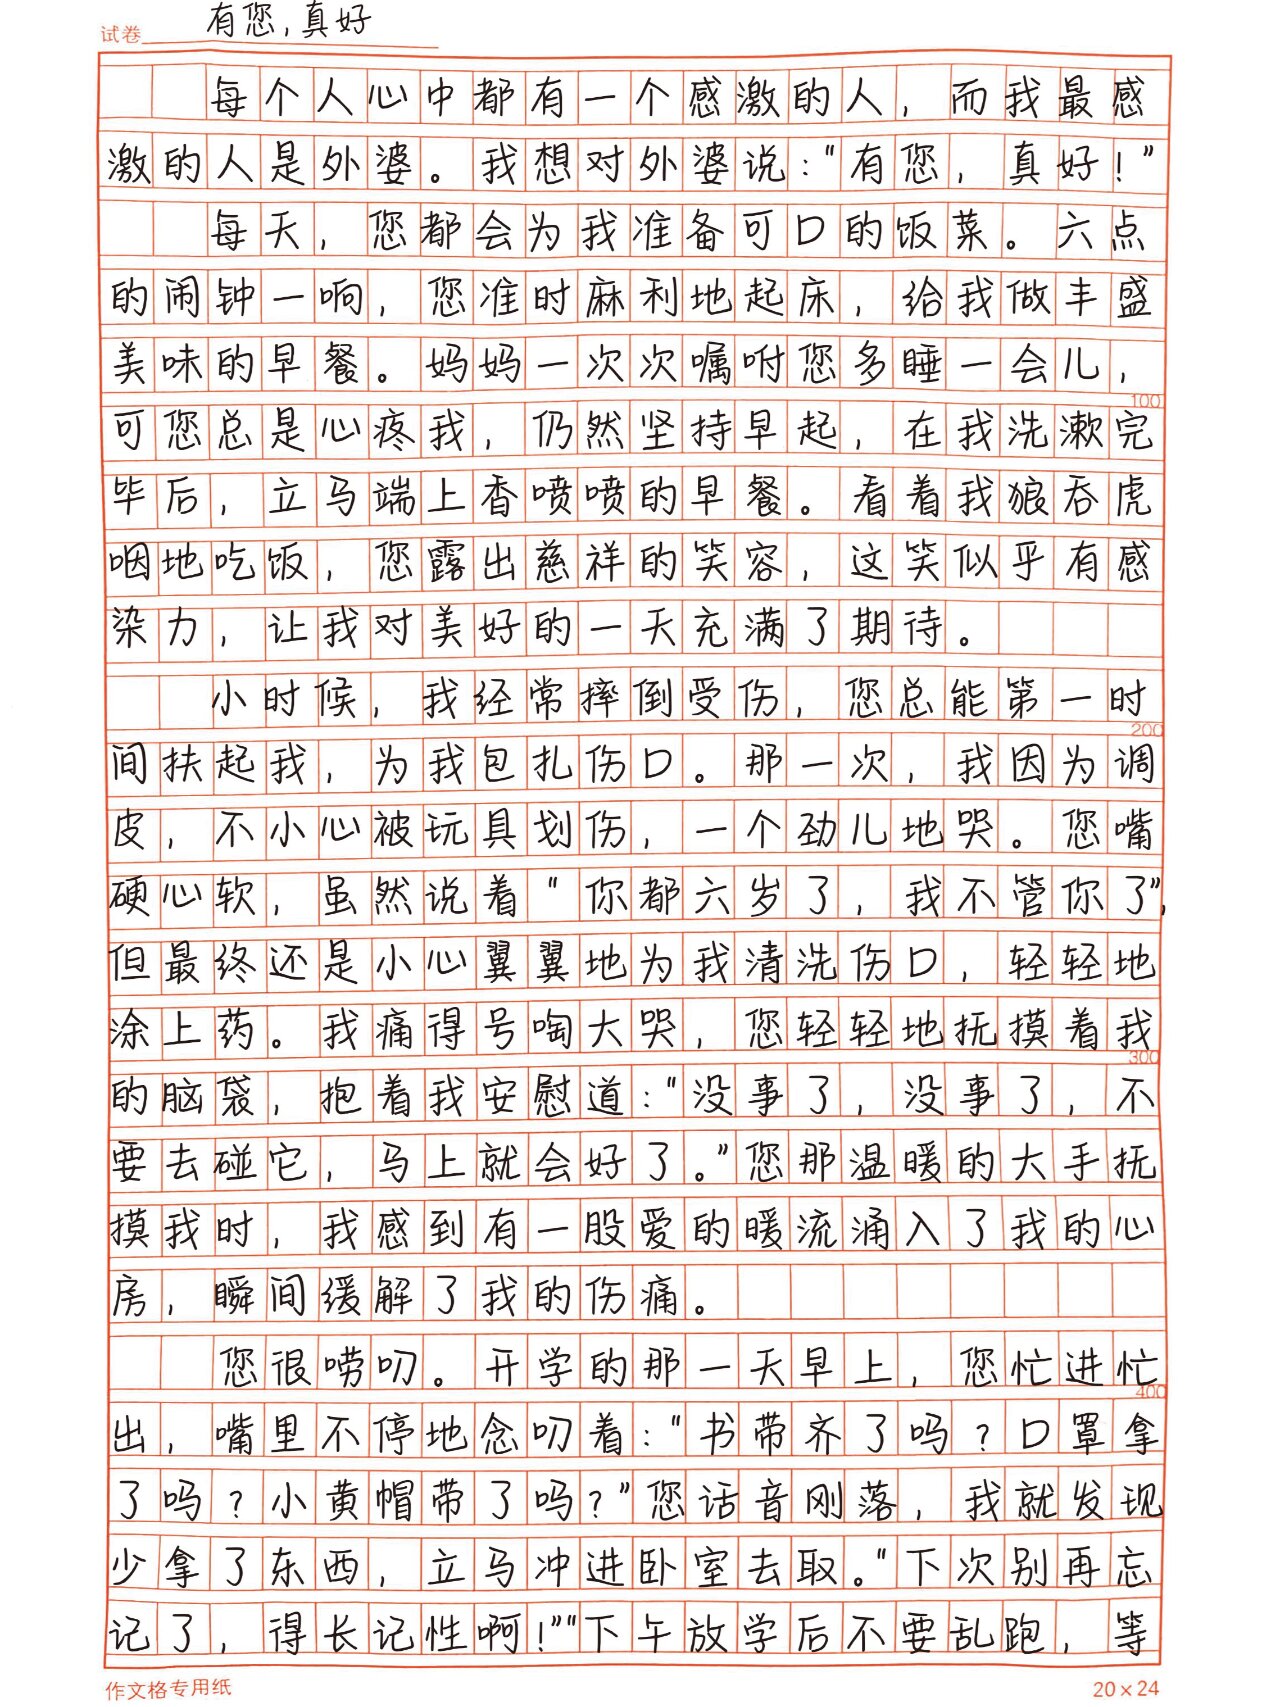 试卷 有您，真好
每个人心中都有一个感激的人，而我最感
激的人是外婆。我想对外婆说："有您，真好！"
每天，您都会为我准备可口的饭菜。六点
的闹钟一响，您准时麻利地起床，给我做丰盛
美味的早餐。妈妈一次次嘱咐您多睡一会儿，
100
可您总是心疼我，仍然坚持早起，在我洗漱完
毕后，立马端上香喷喷的早餐。看着我狼吞虎
咽地吃饭，您露出慈祥的笑容，这笑似乎有感
染力，让我对美好的一天充满了期待。
小时候，我经常摔倒受伤，您总能第一时
200
间扶起我，为我包扎伤口。那一次，我因为调
皮，不小心被玩具划伤，一个劲儿地哭。您嘴
硬心软，虽然说着"你都六岁了，我不管你了"，
但最终还是小心翼翼地为我清洗伤口，轻轻地
涂上药。我痛得号啕大哭，您轻轻地抚摸着我
300
的脑袋，抱着我安慰道："没事了，没事了，不
要去碰它，马上就会好了。"您那温暖的大手抚
摸我时，我感到有一股爱的暖流涌入了我的心
房，瞬间缓解了我的伤痛。
您很唠叨。开学的那一天早上，您忙进忙
400
出，嘴里不停地念叨着："书带齐了吗？口罩拿
了吗？小黄帽带了吗？"您话音刚落，我就发现
少拿了东西，立马冲进卧室去取。"下次别再忘
记了，得长记性啊！""下午放学后不要乱跑，等
作文格专用纸 20×24